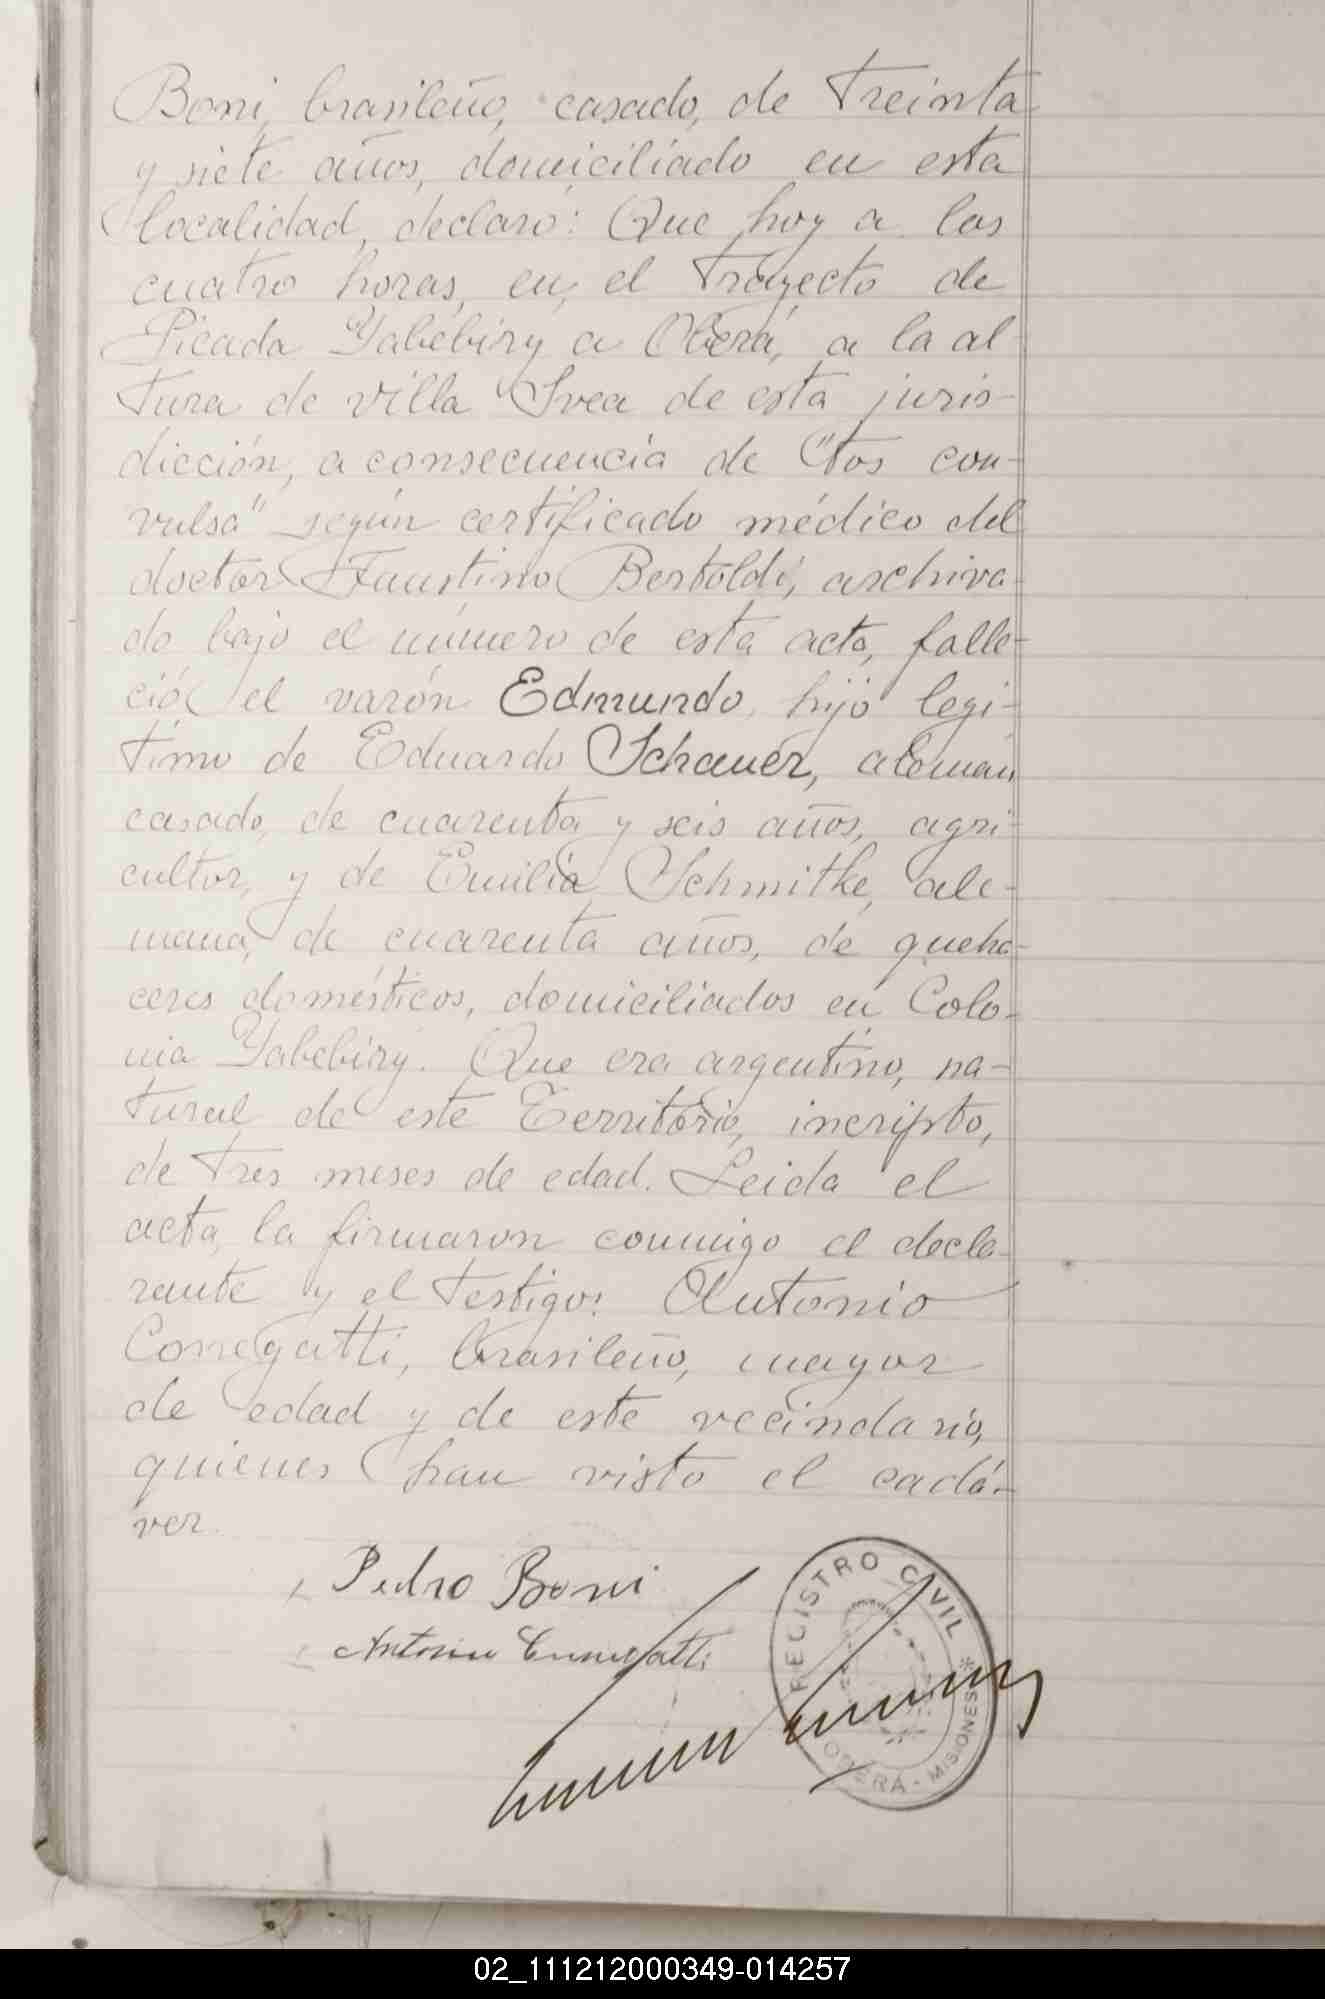 Boni, brasileño, casado, de treinta
y siete años, domiciliado en esta
localidad, declaró: Que hoy a las
cuatro horas, en el trayecto de
Picada Yabebiry a Oberá, a la al
tura de villa Svea de esta juris-
dicción, a consecuencia de "tos con-
vulsa" según certificado médico del
doctor Faustino Bertoldi, archiva-
do bajo el número de esta acta, falle-
ció el varón Edmundo, hijo legí-
timo de Eduardo Schauer, alemán
casado, de cuarenta y seis años, agri-
cultor, y de Emilia Schmitke, ale-
mana, de cuarenta años, de queha-
ceres domésticos, domiciliados en Colo-
nia Yabebiry. Que era argentino, na-
tural de este Territorio, incripto,
de tres meses de edad. Leida el
acta, la firmaron conmigo el decla-
rante y el testigo: Antonio
Conegatti, brasileño, mayor
de edad y de este vecindario,
quienes han visto el cadá-
ver.
Pedro Boni
Antonio
REGISTRO CIVIL
OBERÁ - MISIONES *
02_111212000349-014257